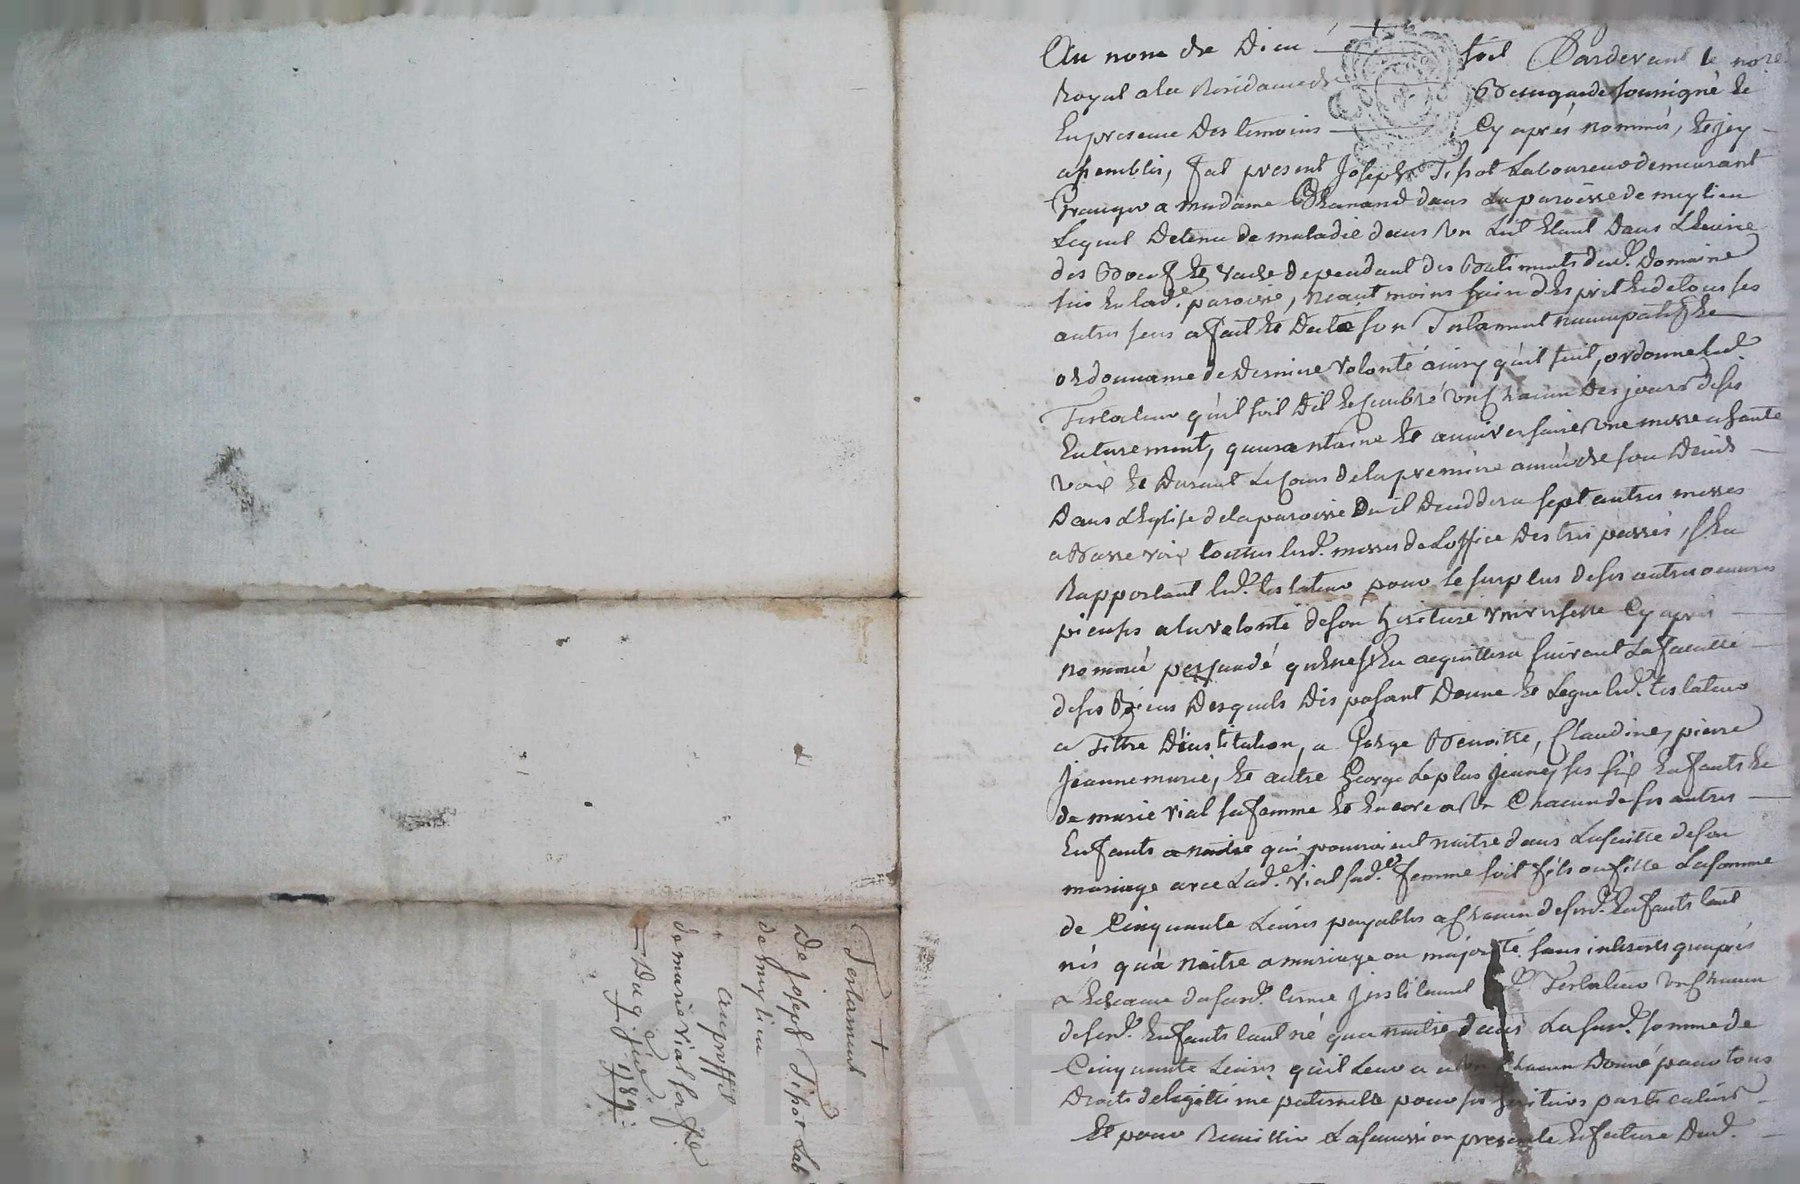 Au nom de Dieu soit Pardevant le nore
Royal a la Residance de Beaugarde soussigné Et
En presence Des temoins Cy aprés nommés, Et jcy
assemblés, fut present Joseph Tissot Laboureur demeurant
Granger a madame Chanand dans La paroisse de meylieu
Lequel Detenu de maladie dans un Lit Etant Dans L'Ecurie
des Boeufs Et vache dependant des Batiments dud. Domaine
sus En lad. paroisse, neantmoins sain d'Esprit Et de tous ses
autres sens a fait Et Dicté son Testament nuncupatif Et
ordonnance de Derniere volonté ainsy qu'il suit, ordonne led.
Testateur qu'il soit Dit Et Celebré un Chacun Des jours de ses
Enterement, quarantaine Et anniversaire Une messe a haute
voix Et Durant Le Cours de la premiere année de son Deces
Dans L'Eglise de la paroisse Du il Deceddera sept autres messes
a Basse voix toutes lesd. messes de L'office Des trépassés, s'En
Rapportant led. testateur pour Le surplus de ses autres oeuvres
pieuses a la volonté de son heritiere universelle Cy aprés
nommée persuadé qu'Elle s'En acquittera suivant La faculté
de ses Biens Desquels Disposant Donne Et Legue led. testateur
a Tittre D'institution, a George Benoitte, Claudine, pierre
Jeanne marie, Et autre George Le plus Jeune, ses six Enfants Et
de marie vial sa femme Et Encore a Un Chacun de ses autres
Enfants a naitre qui pourroient naitre dans La suitte de son
mariage avec Lad. vial sad. femme soit fils ou fille La somme
de Cinquante Livres payables a Chacun de sesd. Enfants tant
nés qu'a Naitre a mariage ou majorité sans interets qu'aprés
L'Echeance du susd. terme Instituant led. Testateur un Chacun
de sesd. Enfants tant né qu'a naitre dans La susd. somme de
Cinquante Livres qu'il Leur a a Un Chacun Donné pour tous
Droits de legittime paternelle pour ses heritiers particuliers
Et pour Recuillir La sucession presente Et future Dud.
Testament
De Joseph Tissot Lab
de meylieu
au proffit
de marie vial sa fe
Du 9 1789